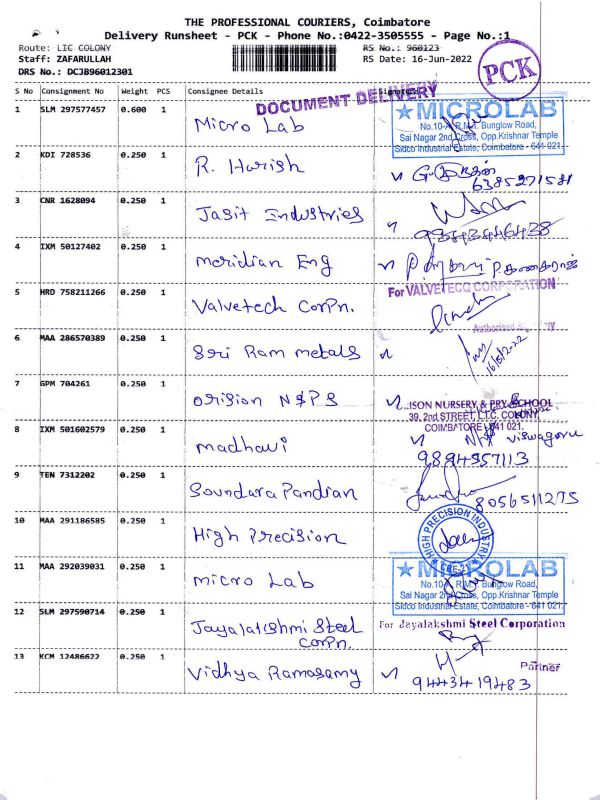 THE PROFESSIONAL COURIERS, Coimbatore
Delivery Runsheet - PCK - Phone No.:0422-3505555 - Page No.:1
Route: LIC COLONY
RS No.: 960123
Staff: ZAFARULLAH
RS Date: 16-Jun-2022
DRS No.: DCJB96012301
PCK
S No Consignment No Weight PCS Consignee Details Signature
DOCUMENT DELIVERY
1 SLM 297577457 0.600 1 Micro Lab
MICROLAB
No.10-A, R.M.T. Bunglow Road,
Sai Nagar 2nd Cross, Opp.Krishnar Temple
Sidco Industrial Estate, Coimbatore - 641 021.
2 KDI 728536 0.250 1 R. Harish
6385271581
3 CNR 1628094 0.250 1 Jasit Industries
4 IXM 50127402 0.250 1 Meridian Eng
P. கனகராஜ்
5 HRD 758211266 0.250 1 Valvetech Corpn.
For VALVETECQ CORPORATION
Authorised
6 MAA 286570389 0.250 1 Sri Ram metals
16/6/2022
7 GPM 704261 0.250 1 Orision N&PS
ISON NURSERY & PRY SCHOOL
39, 2nd STREET, L.I.C. COLONY,
COIMBATORE - 641 021.
8 IXM 501602579 0.250 1 Madhavi
Viswaguru
9894957113
9 TEN 7312202 0.250 1 Soundara Pandian
8056511275
10 MAA 291186585 0.250 1 High Precision
HIGH PRECISION INDUSTRY
CBE-21
11 MAA 292039031 0.250 1 micro Lab
MICROLAB
No.10-A, R.M.T. Bunglow Road,
Sai Nagar 2nd Cross, Opp.Krishnar Temple
Sidco Industrial Estate, Coimbatore - 641 021.
12 SLM 297590714 0.250 1 Jayalakshmi Steel
Corpn.
For Jayalakshmi Steel Corporation
Partner
13 KCM 12486622 0.250 1 Vidhya Ramasamy
9443419483